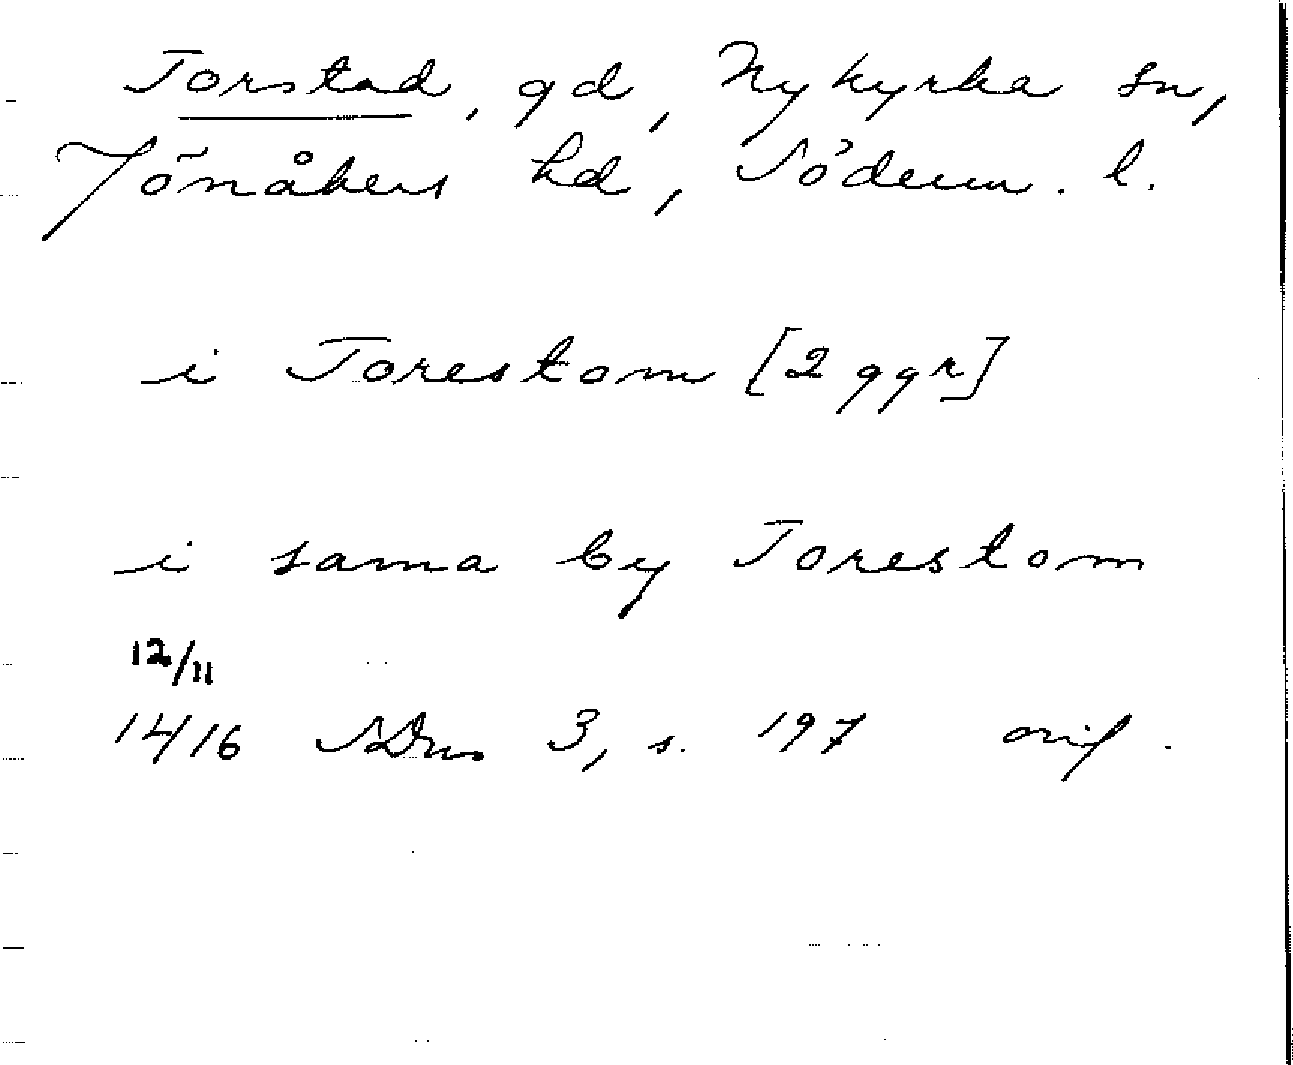 Torstad, gd, Nykyrka sn,
Jönåkers hd, Söderm. l.
i Torestom [2 ggr]
i sama by Torestom
12/11
1416 SDns 3, s. 197 orig.